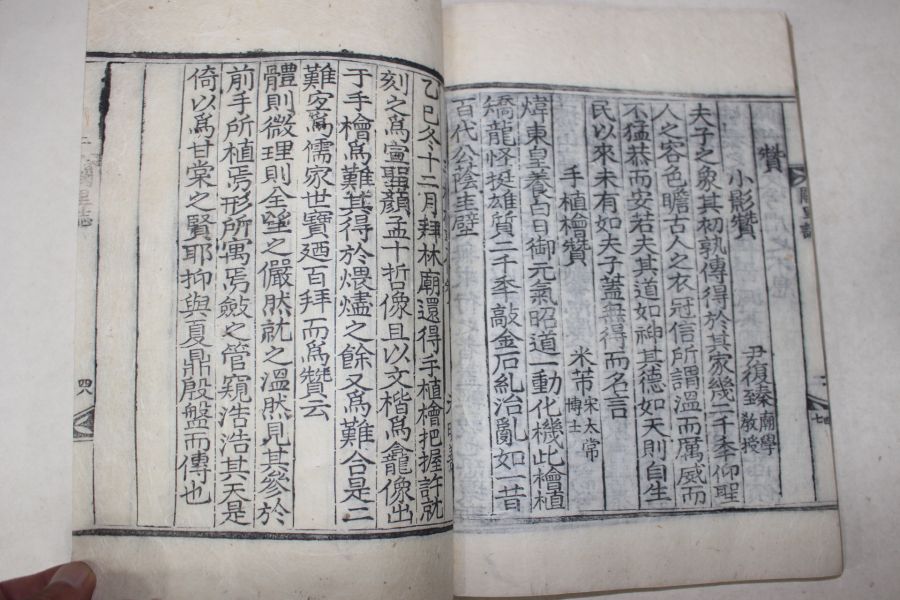 贊
小影贊 尹復臻 廟學教授 至
夫子之象其初孰傳得於其家幾二千年仰聖
人之容色瞻古人之衣冠信所謂溫而厲威而
不猛恭而安若夫其道如神其德如天則自生
民以來未有如夫子蓋無得而名言
手植檜贊 米芾 宋太常博士
煒東皇養白日御元氣昭道一動化機此檜植
矯龍怪挺雄質二千年敲金石糺治亂如一昔
百代公蔭圭璧
乙巳冬十二月拜林廟還得手植檜把握許就
刻之爲宣聖顏孟十哲像且以文楷爲龕像出
于手檜爲難其得於煨燼之餘又爲難合是二
難宜爲儒家世寶廼百拜而爲贊云
體則微理則全望之儼然就之溫然見其參於
前手所植焉形所寓焉斂之管窺浩浩其天是
倚以爲甘棠之賢耶抑與夏鼎殷盤而傳也
四八